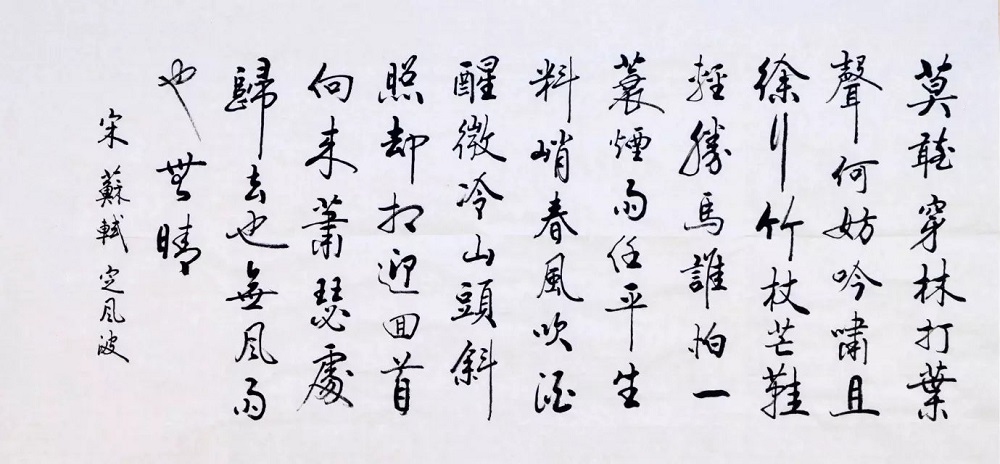 莫聽穿林打葉
聲何妨吟嘯且
徐行竹杖芒鞋
輕勝馬誰怕一
蓑煙雨任平生
料峭春風吹酒
醒微冷山頭斜
照却相迎回首
向来蕭瑟處
歸去也無風雨
也無晴
宋 蘇軾 定風波